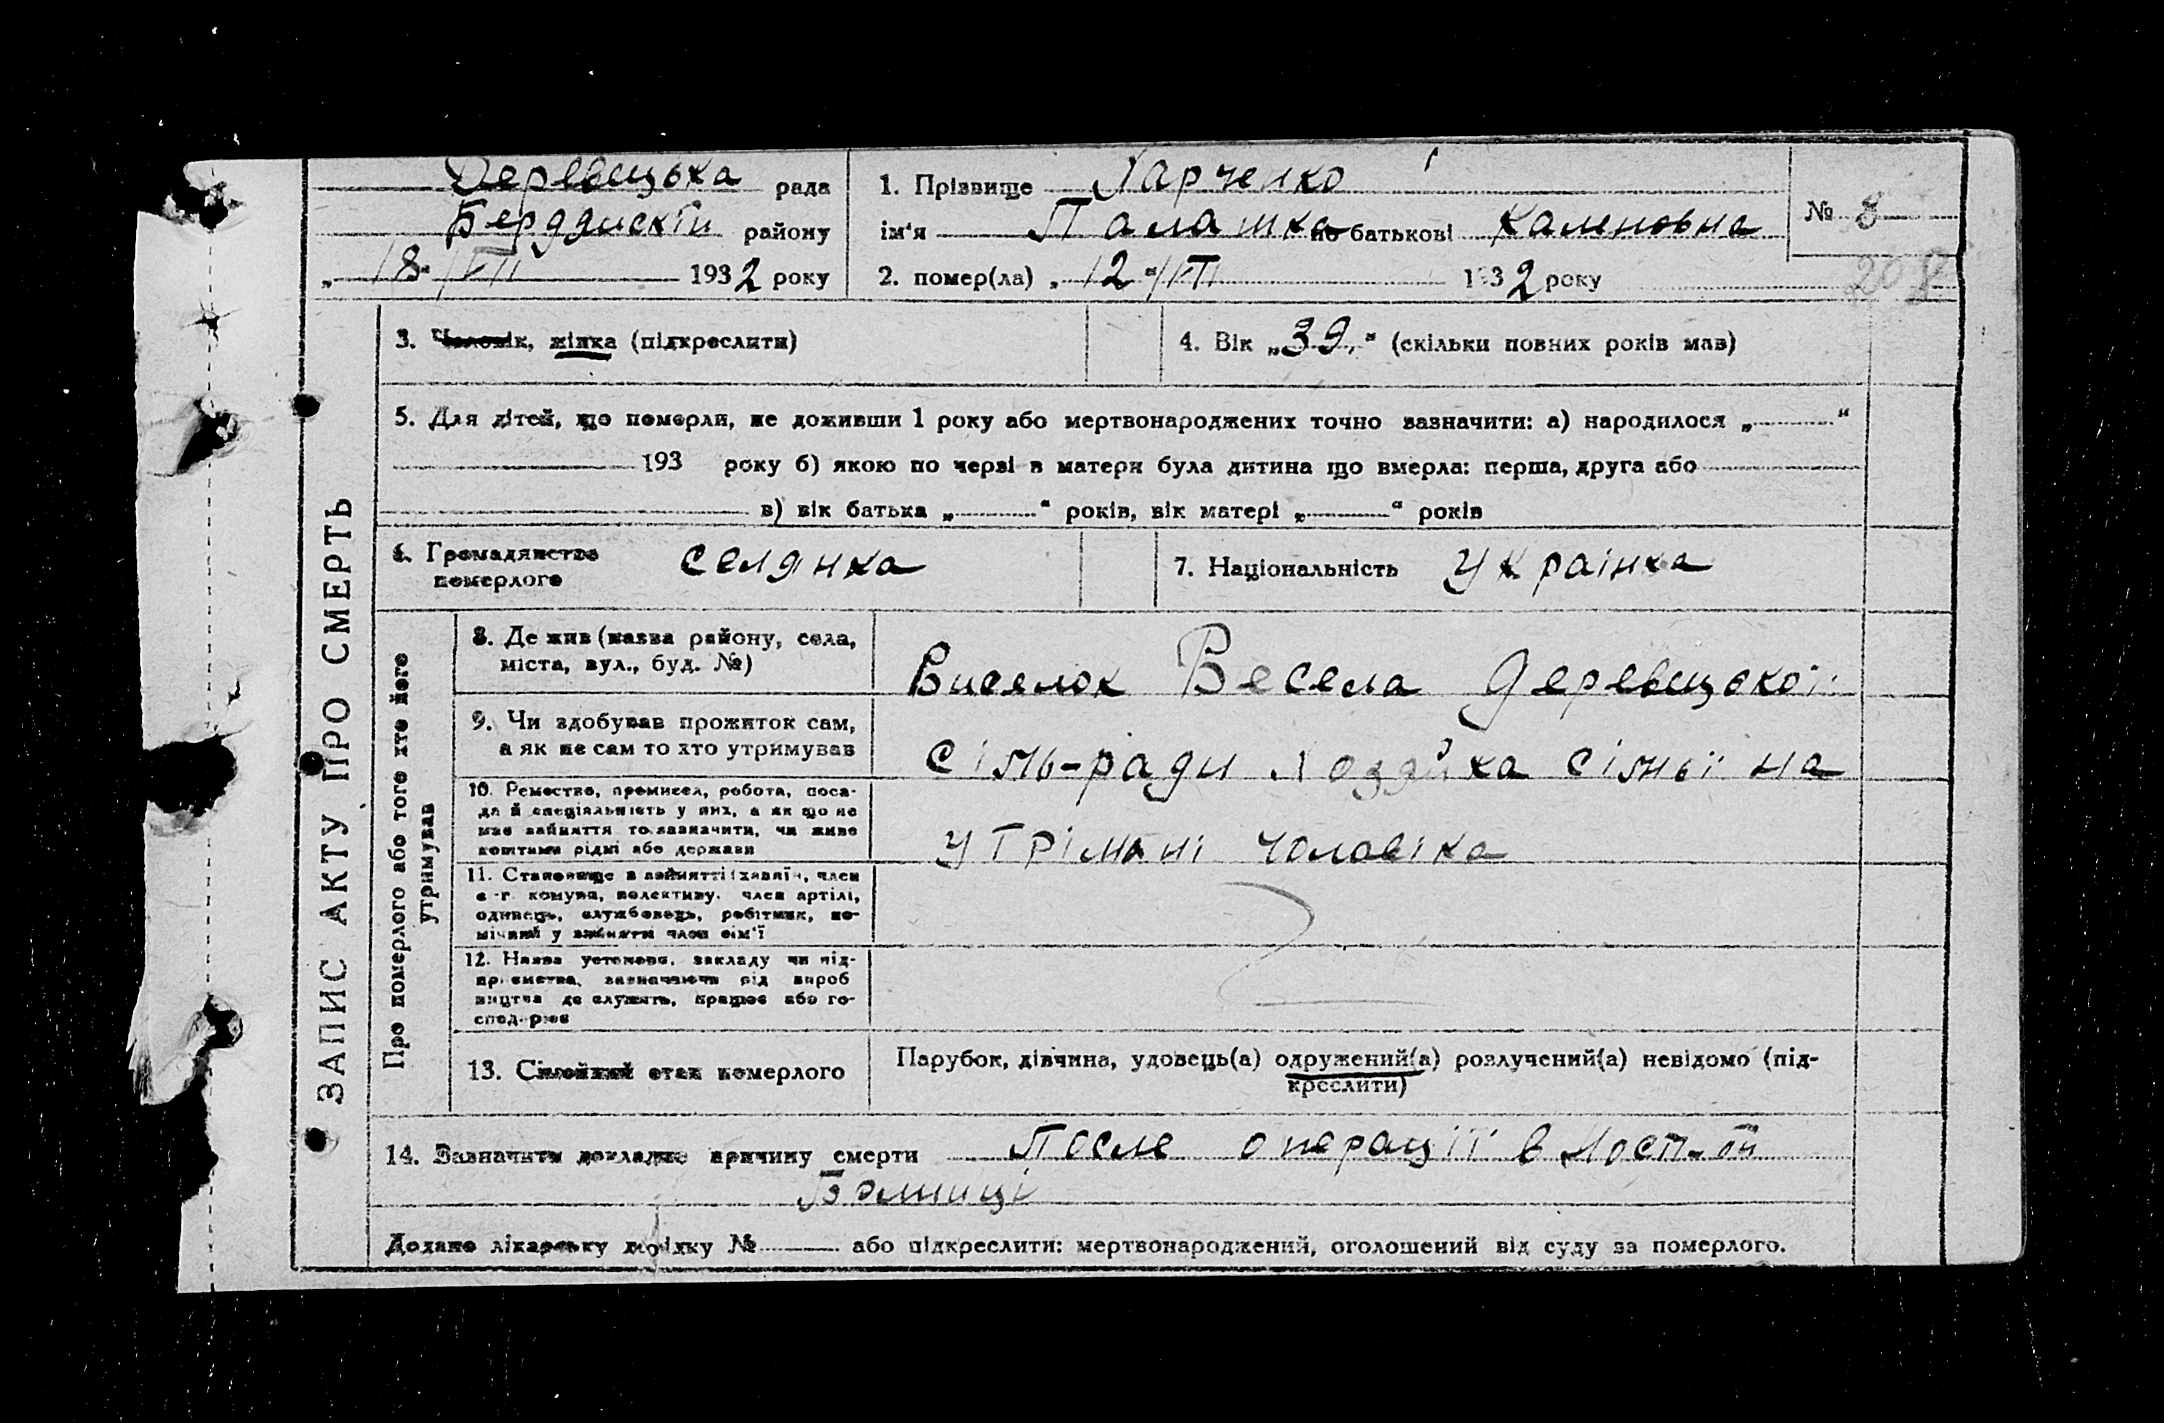 ЗАПИС АКТУ ПРО СМЕРТЬ
Деревецька рада
району
„18“ VII 1932 року
1. Прізвище Харченко
ім'я Палашка по батькові Калиновна
2. помер(ла) „12“ VII 1932 року
№ 8
208
3. Чоловік, жінка (підкреслити)
4. Вік „39“ (скільки повних років мав)
5. Для дітей, що померли, не доживши 1 року або мертвонароджених точно зазначити: а) народилося „ “
193 року б) якою по черзі в матери була дитина що вмерла: перша, друга або
в) вік батька „ “ років, вік матері „ “ років
6. Громадянство померлого селянка
7. Національність Українка
Про померлого або того хто його утримував
8. Де жив (назва району, села,
міста, вул., буд. №)
Виселок Весела Деревецької
9. Чи здобував прожиток сам,
а як не сам то хто утримував
сіль-ради Хозяйка сімьї на
10. Ремество, промисел, робота, поса-
да й специяльність у них, а як що не
має зайняття то зазначити, чи живе
коштами рідні або держави
утрімані чоловіка
11. Становище в зайнятті (хазяїн, член
с.-г. комуни, колективу, член артілі,
одинець, службовець, робітник, по-
мічний у зайнятті член сім'ї
12. Назва установи, закладу чи під-
приємства, зазначаючи рід вироб
ництва де служить, працює або го-
сподарює
13. Сімейний стан померлого
Парубок, дівчина, удовець(а) одружений(а) розлучений(а) невідомо (під-
креслити)
14. Зазначити докладно причину смерти После операції в
Болниці
Додано лікарську довідку № або підкреслити: мертвонароджений, оголошений від суду за померлого.